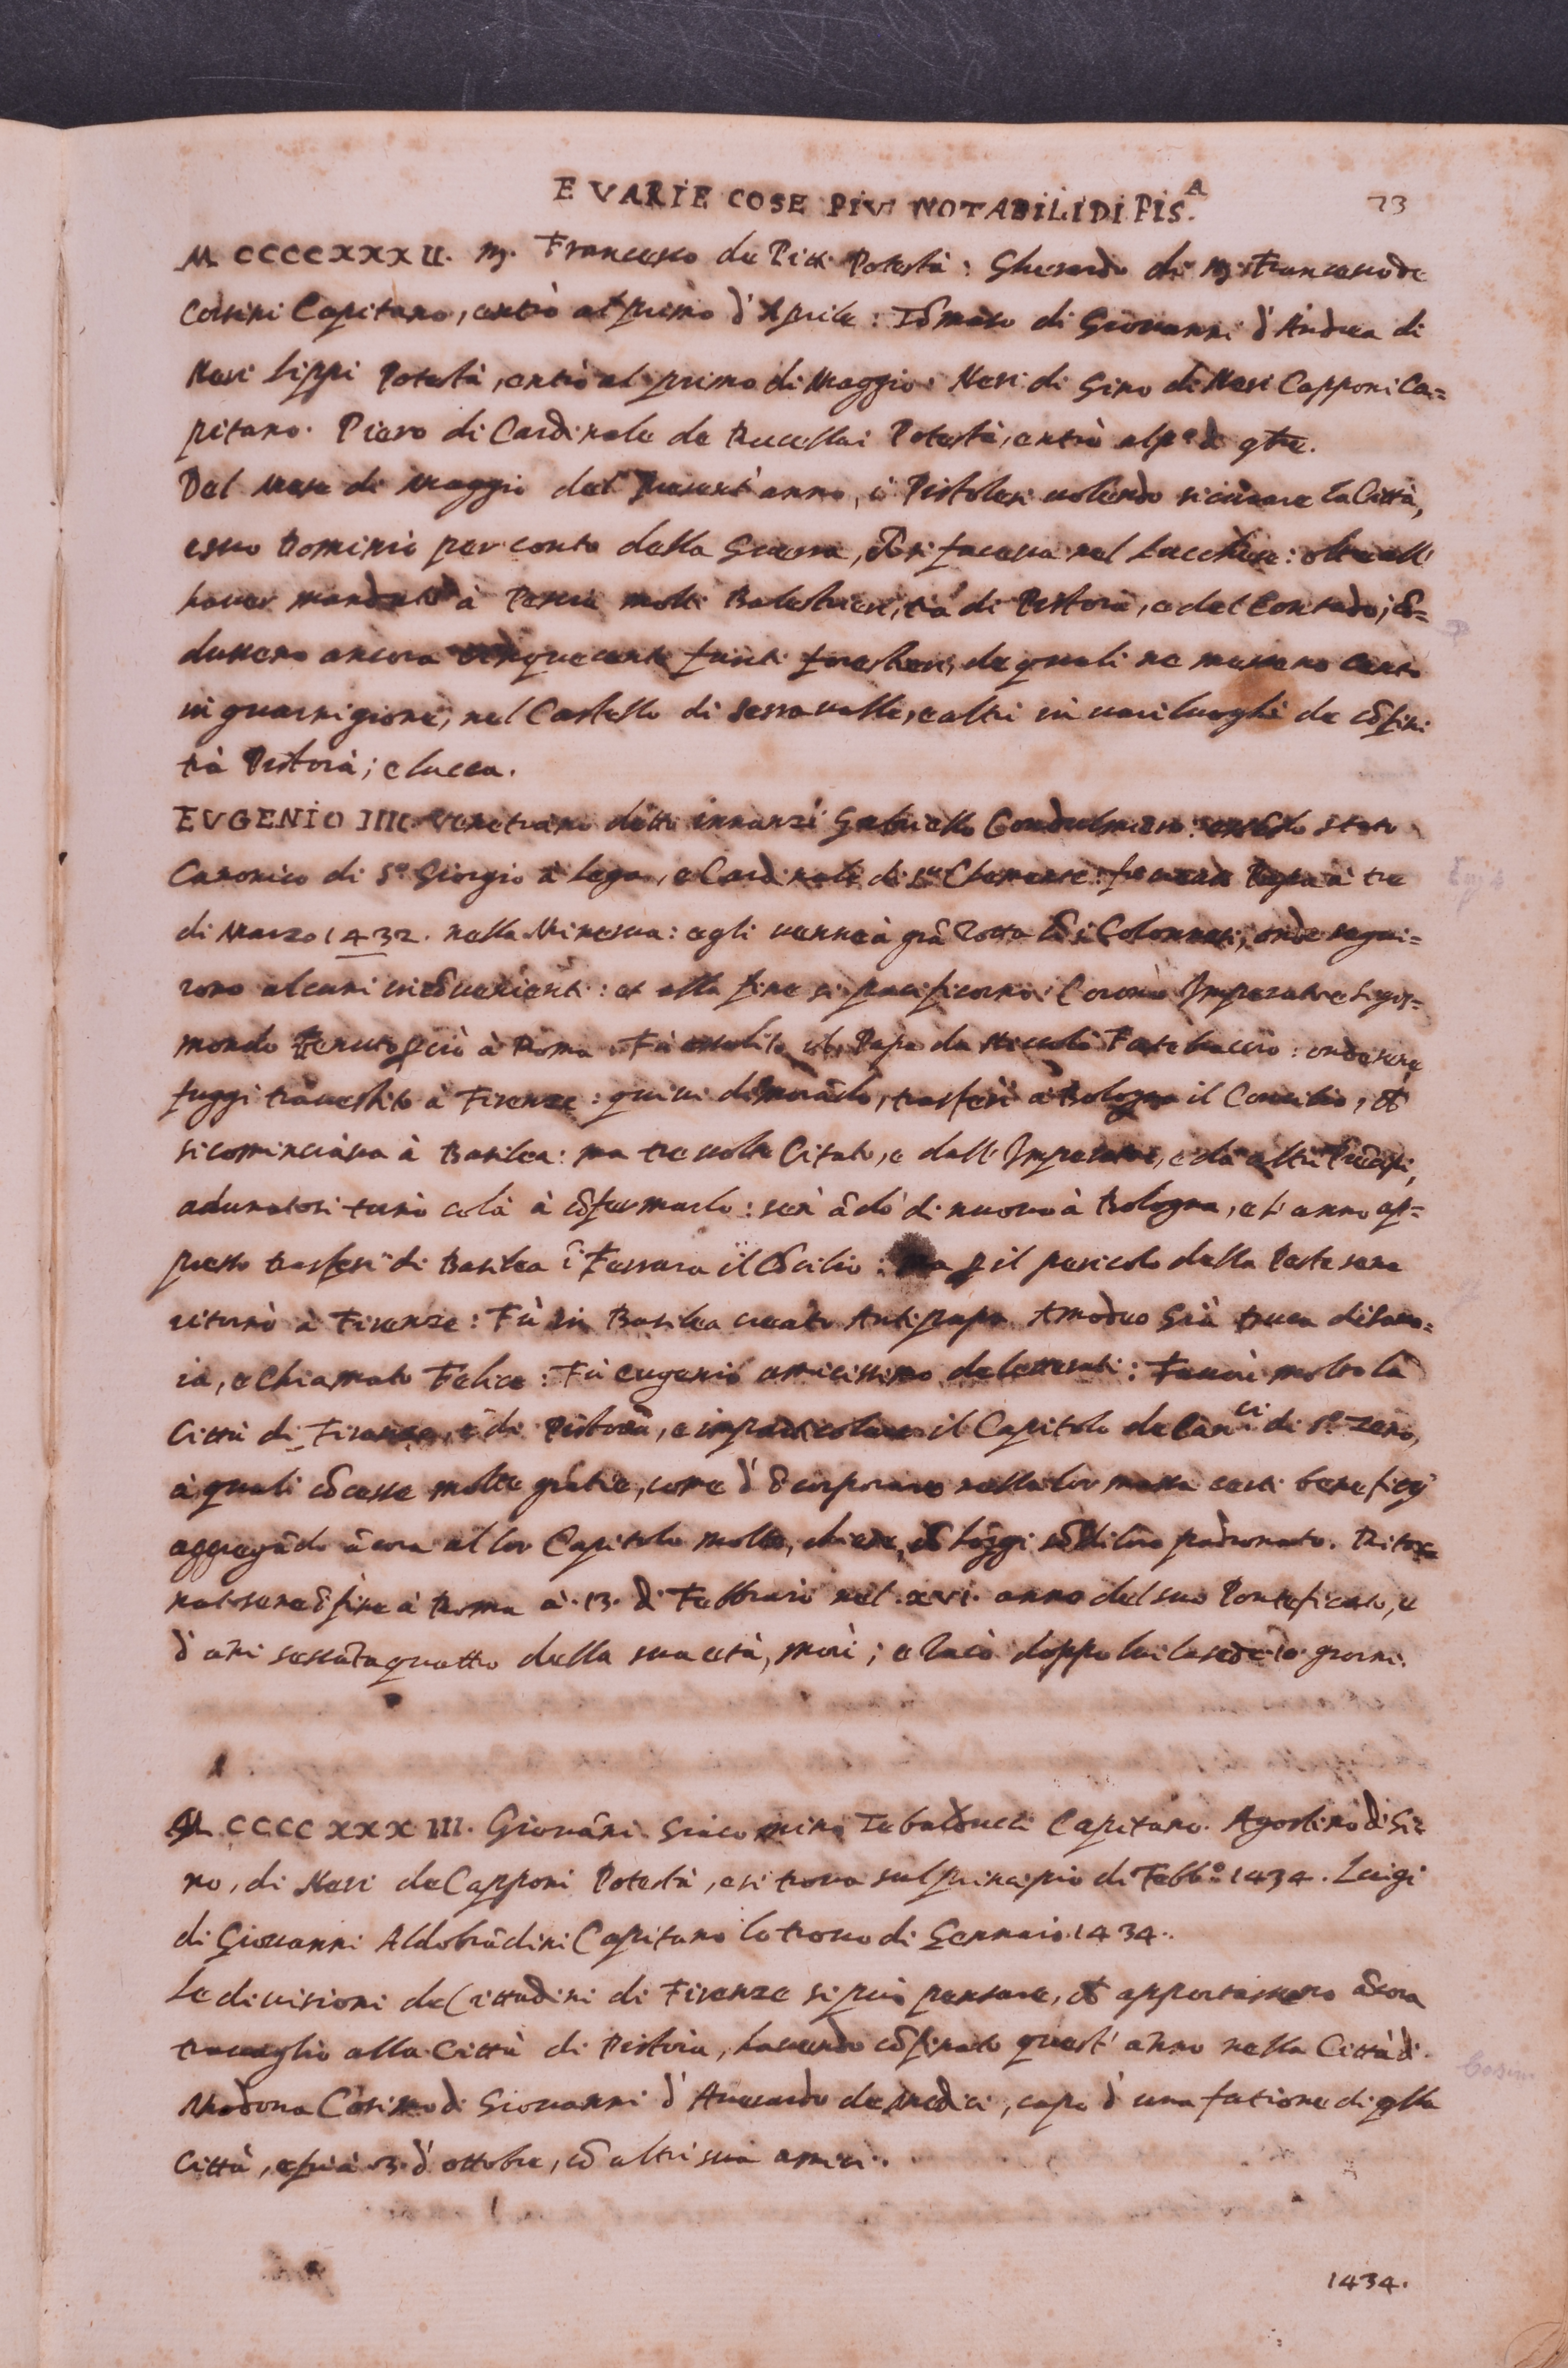 E VARIE COSE PIV NOTABILI DI PIS.A
73
M CCCCXXXII. m. Francesco de Pitti Potestà: Gherardo di m. Francesco de
Corsini Capitano, entrò al primo d'Aprile: Tõmaso di Giovanni d'Andrea di
Neri Lippi Potestà, entrò al primo di Maggio: Neri di Gino di Neri Capponi Ca=
pitano. Piero di Cardinale de Rucellai Potestà, entrò al p.º d' 9bre.
Del Mese di Maggio del present'anno, i Pistolesi volendo sicurare la Città,
e suo Dominio per conto della Guerra, si faceva nel Lucchese: oltre all'
haver mandato à Pescia molti Balestrieri, trà di Pistoia, e del Contado; cõ=
dussero ancora cinquecento fanti forestieri, de quali ne messero cento
in guarnigione, nel Castello di Serravalle, e altri in varii luoghi de cõfini
trà Pistoia; e Lucca.
EVGENIO IIII Venetiano detto innanzi Gabriello Condulmero: stato
Canonico di S.º Giorgio à Lega, e Cardinale di S.ᵗᵒ Clemente: fu creato Papa à tre
di Marzo 1432. nella Minerva: egli venne à grã rotta cõ i Colonnesi, onde segui=
rono alcuni incõvenienti: et alla fine si pacificorno: Coronò Imperatore Sigis=
mondo venuto p ciò à Roma. Fù assalito il Papa da Niccolò Fortebraccio: onde sene
fuggì travestito à Firenze: quivi dimorãdo, trasferì à Bologna il Concilio, che
si cominciava à Basilea: ma tre volte Citato, e dall'Imperatore, e da altri Prĩcipi,
adunatosi tornò colà à cõfermarlo: sen' ãdò di nuovo à Bologna, e l'anno ap=
presso trasferì di Basilea ĩ Ferrara il Cõcilio: ma p il pericolo della Peste sene
ritornò à Firenze: Fù in Basilea creato Antipapa Amodeo Già Duca di Savo=
ia, e chiamato Felice: Fù Eugenio amicissimo de letterati: Favorì molto la
Città di Firenze, e di Pistoia, e in particolare il Capitolo de Canci di S.º Zeno,
à quali cõcesse molte gratie, come d' ĩcorporare nella lor massa certi beneficij
aggregãdo ãcora al lor Capitolo molte chiese, loro padronato. Ritor=
natosene ĩ fine à Roma à 13. di Febbraio nel xvi. anno del suo Pontificato, e
d'ani sessãtaquattro della sua età, morì; e vacò doppo lui la sede 10 giorni.
M CCCC XXX III. Giovãni Giacomino Tebalducci Capitano. Agostino di Gi=
no, di Neri de Capponi Potestà, e si trova sul principio di Febb.º 1434. Luigi
di Giovanni Aldobrãdini Capitano lo trovo di Gennaio 1434.
Le divisioni de Cittadini di Firenze si può pensare, che apportassero ãcora
travaglio alla Città di Pistoia, havendo cõfinato quest'anno nella Città di
Modona Cosimo di Giovanni d'Averardo de Medici, capo d'una fatione di qlla
Città, e fù à 3. d'ottobre, cõ altri sua amici.
1434.